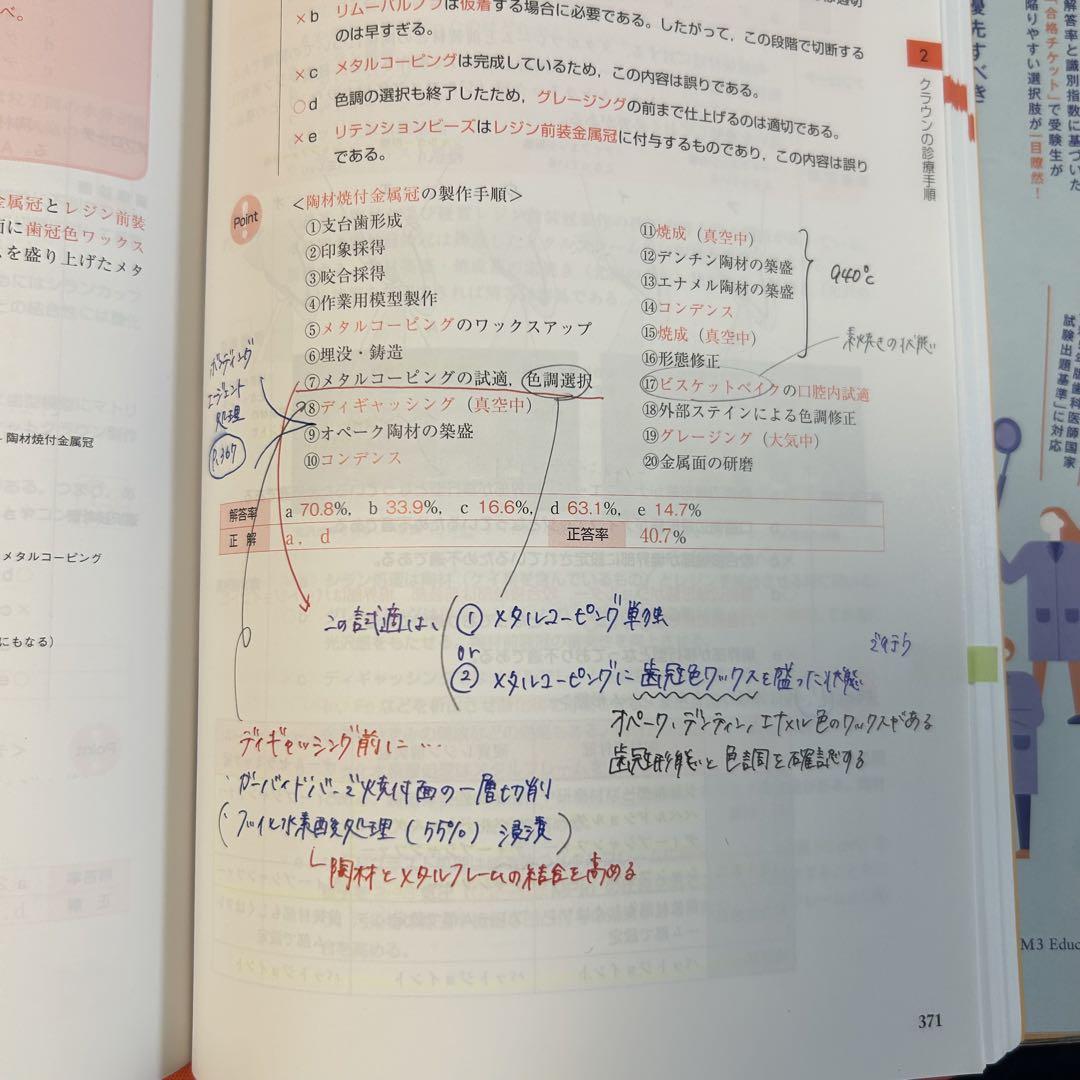 べ。
金属冠とレジン前装
面に歯冠色ワックス
スを盛り上げたメタ
陶材焼付金属冠
メタルコーピング
にもなる）
×b リムーバルノブは仮着する場合に必要である。したがって，この段階で切断する
のは早すぎる。
×c メタルコーピングは完成しているため，この内容は誤りである。
○d 色調の選択も終了したため，グレージングの前まで仕上げるのは適切である。
×e リテンションビーズはレジン前装金属冠に付与するものであり，この内容は誤り
である。
Point
＜陶材焼付金属冠の製作手順＞
①支台歯形成
②印象採得
③咬合採得
④作業用模型製作
⑤メタルコーピングのワックスアップ
⑥埋没・鋳造
⑦メタルコーピングの試適，色調選択
⑧ディギャッシング（真空中）
⑨オペーク陶材の築盛
⑩コンデンス
⑪焼成（真空中）
⑫デンチン陶材の築盛
⑬エナメル陶材の築盛
⑭コンデンス
⑮焼成（真空中）
⑯形態修正
⑰ビスケットベイクの口腔内試適
⑱外部ステインによる色調修正
⑲グレージング（大気中）
⑳金属面の研磨
940℃
素焼きの状態
ボンディング
エージェント
処理
P.367
解答率 a 70.8%, b 33.9%, c 16.6%, d 63.1%, e 14.7%
正解 a, d 正答率 40.7%
この試適は、① メタルコーピング単独
or
② メタルコーピングに歯冠色ワックスを盛った状態
オペーク、デンティン、エナメル色のワックスがある
歯冠形態と色調を確認する
ディギャッシング前に…
・カーバイドバーで焼付面の一層切削
・フッ化水素酸処理（55%）浸漬
陶材とメタルフレームの結合を高める
2
クラウンの診療手順
371
優先すべき
解答率と識別指数に基づいた
「合格チケット」で受験生が
陥りやすい選択肢が一目瞭然！
版歯科医師国家
試験出題基準」に対応
M3 Educ